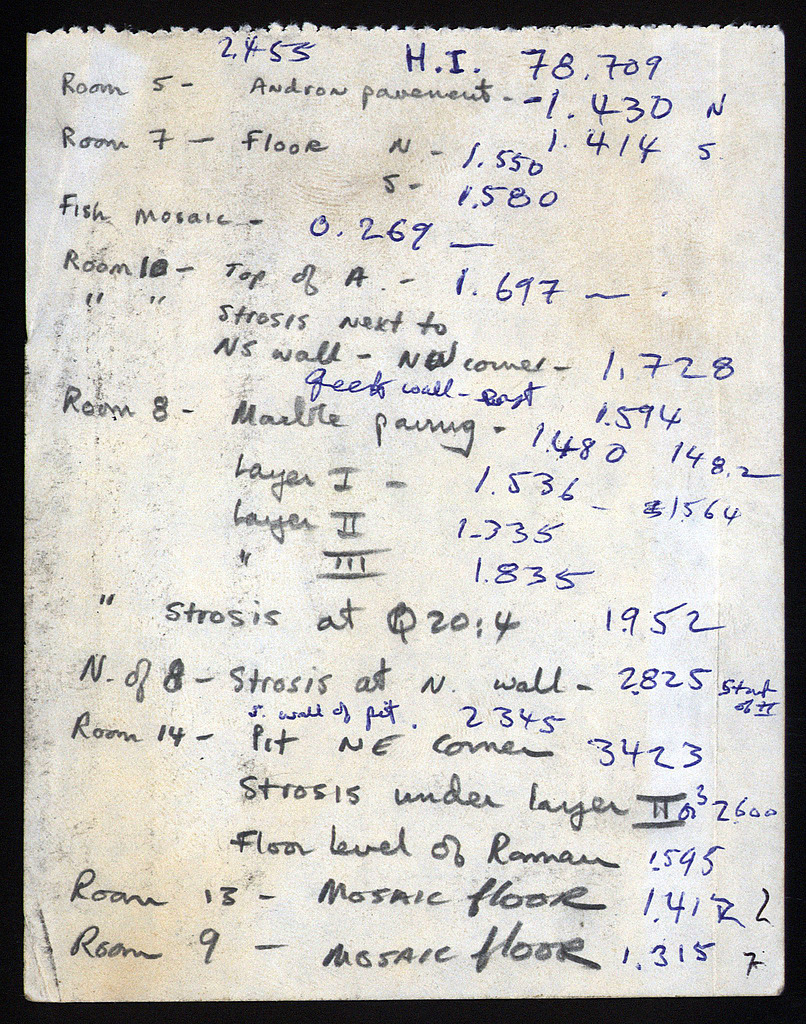 2.455 H.I. 78.709
Room 5 - Andron pavement - -1.430 N
1.414 S
Room 7 - Floor N - 1.550
S - 1.580
Fish mosaic - 0.269 —
Room 10 - Top of A. - 1.697 — .
" " Strosis next to
NS wall - NW corner - 1.728
Geek wall - east 1.594
Room 8 - Marble paving - 1.480 148.2
Layer I - 1.536 - 1564
Layer II 1.335
" III 1.835
" Strosis at Q 20:4 1952
N. of 8 - Strosis at N. wall - 2825 Start of II
S. wall of pit. 2345
Room 14 - Pit NE corner 3423
Strosis under layer II or 3 2600
Floor level of Roman 1595
Room 13 - Mosaic floor 1.417 2
Room 9 - Mosaic floor 1.315 7